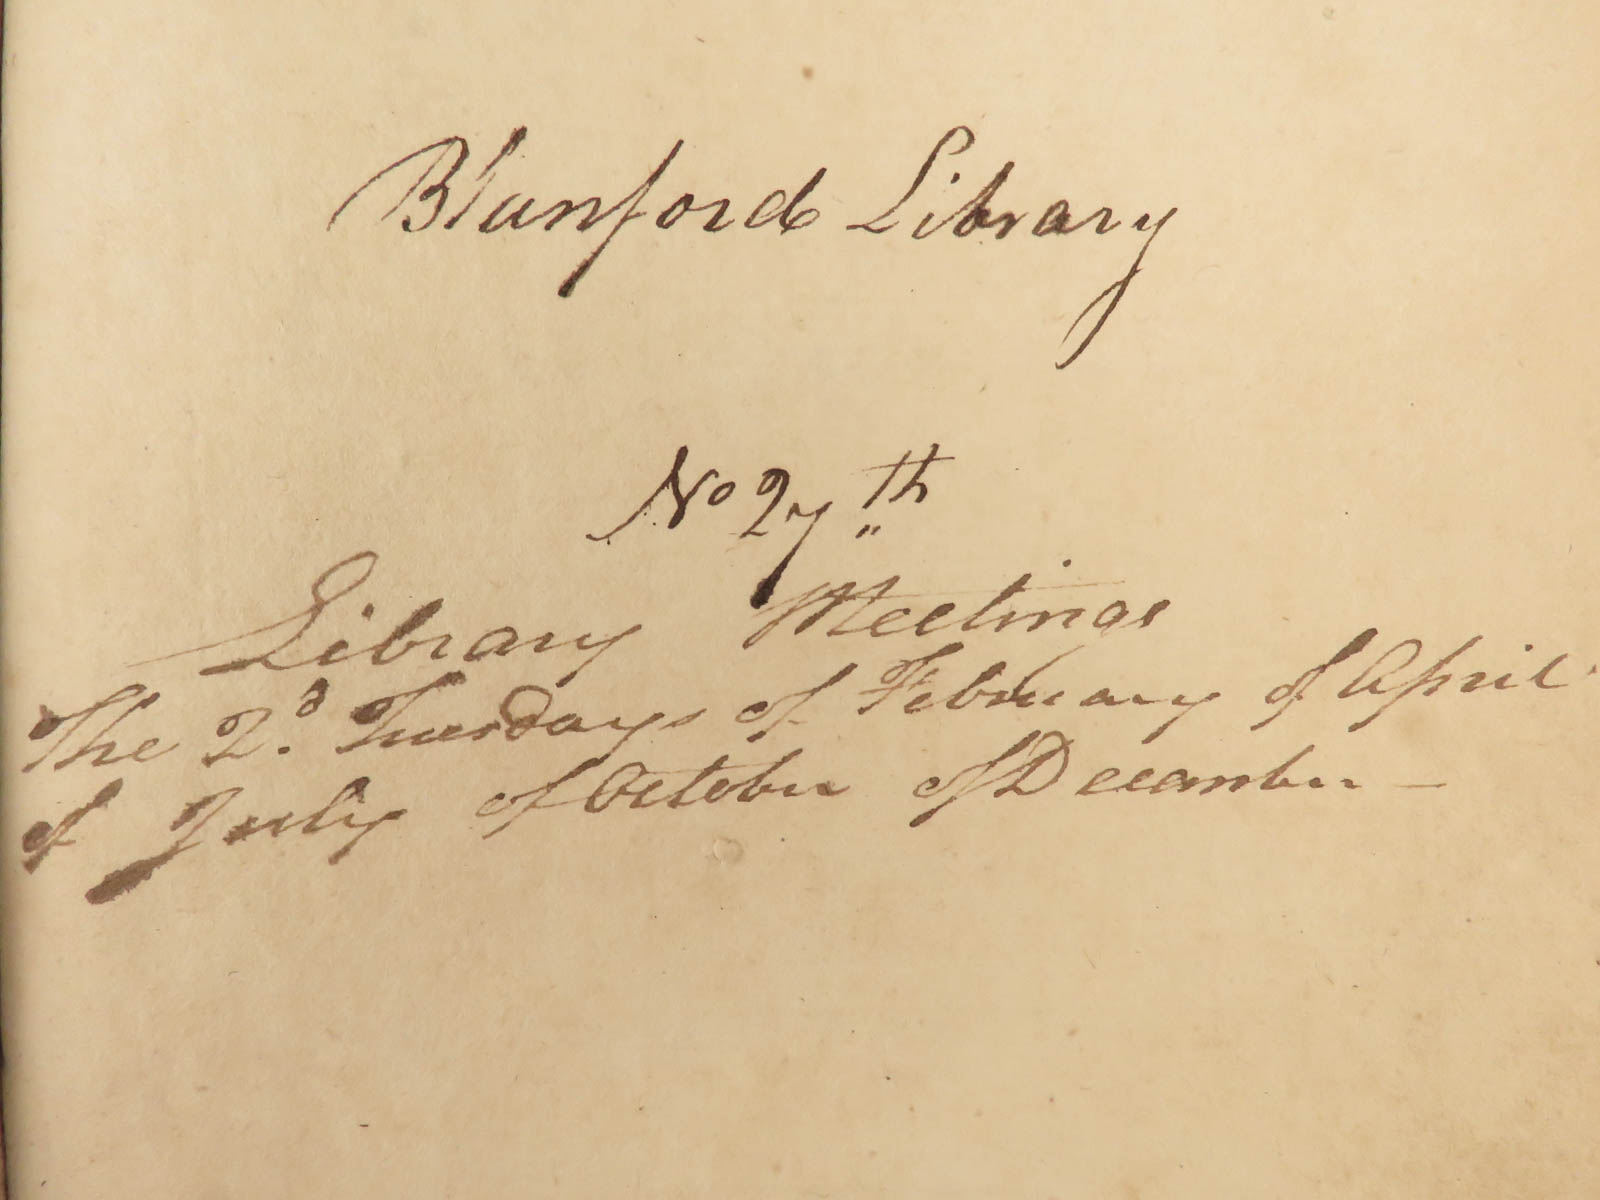 Blanford Library
No 27th
Library Meetings
The 2d. Tuesdays of February of April
of July of October of December –